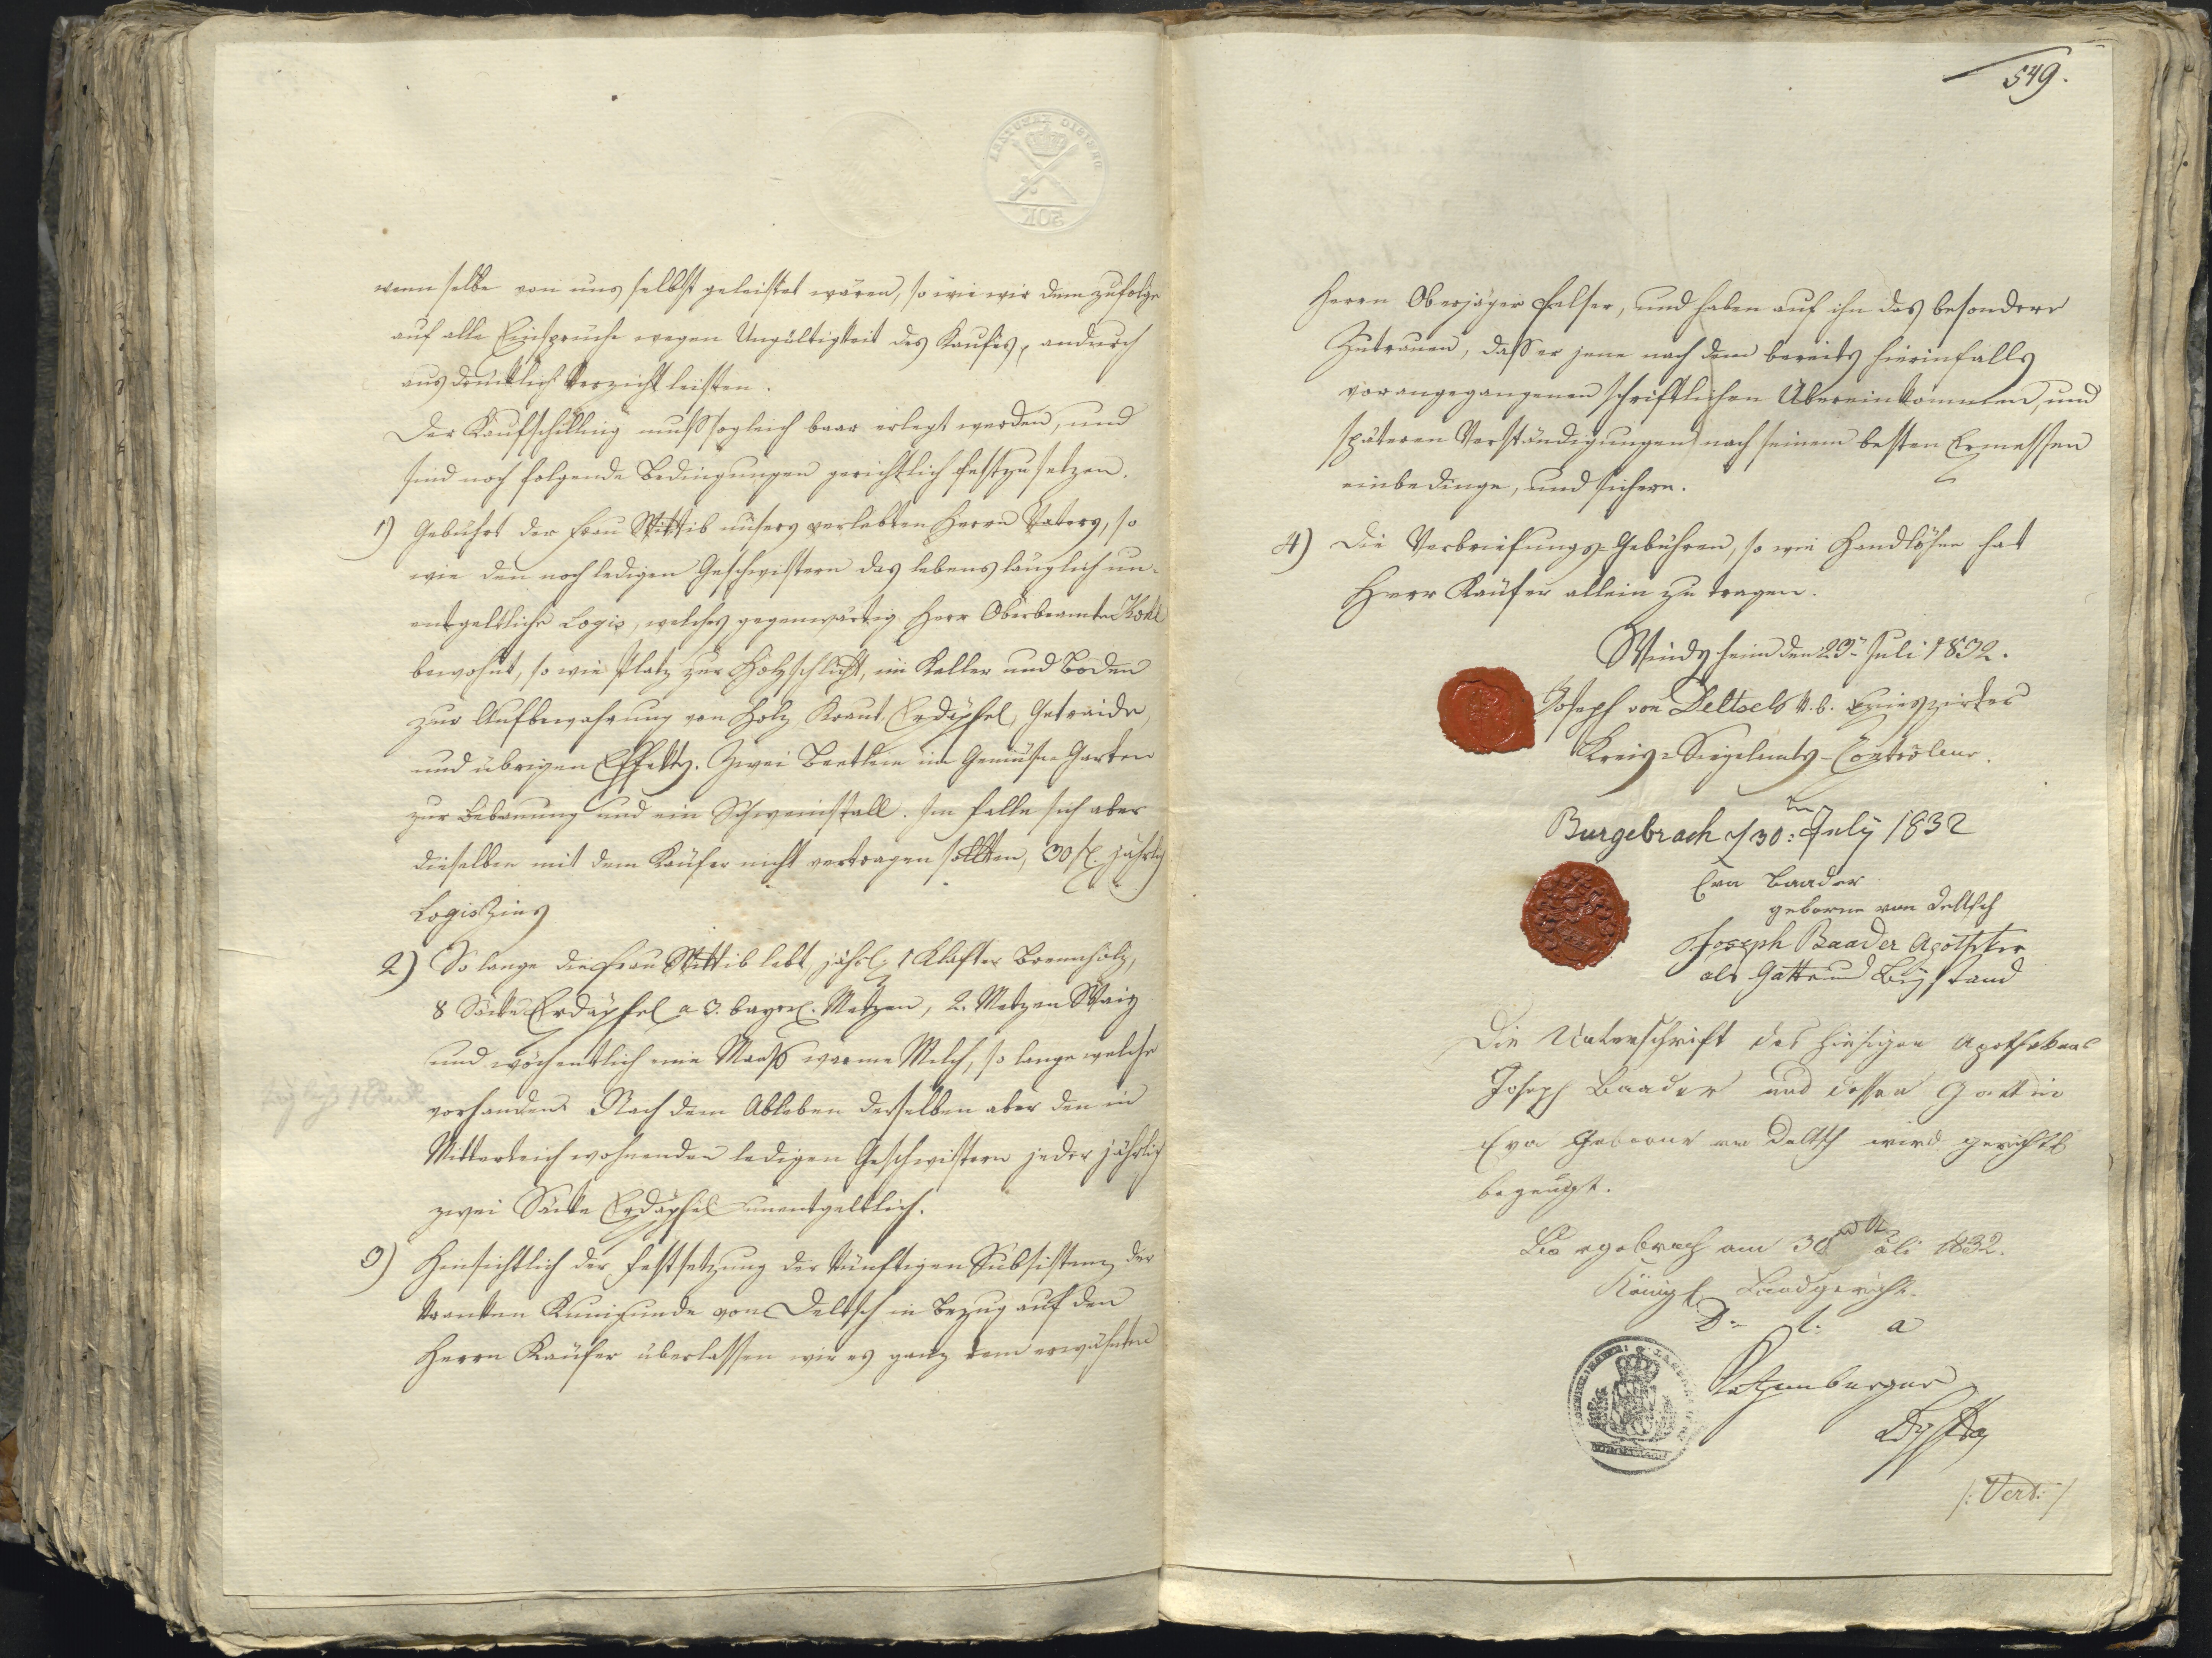 wenn selbe von uns selbst geleistet wären, so wie wir dem zufolge
auf alle Einsprüche wegen Ungültigkeit des Kaufes, andurch
ausdrücklich Verzicht leisten.
Der Kaufschilling muß sogleich baar erlegt werden, und
sind noch folgende Bedingungen gerichtlich festzusetzen.
1) Gebührt der Frau Wittib unsers verlebten Herrn Vaters, so
wie den noch ledigen Geschwistern das lebenslänglich un-
entgeltliche Logis, welches gegenwärtig Herr Oberbeamte
bewohnt, so wie Platz zur Holzschlicht, im Keller und Boden
zur Aufbewahrung von Holz, Kraut, Erdäpfel, Getraide,
und übrigen Effekts. Zwei Beetlein im Gemüse Garten
zur Bebauung und ein Schweinstall. Im Falle sich aber
dieselben mit dem Käufer nicht vertragen sollten, 30 fl. jährlich
Logiszins
2) So lange die Frau Wittib lebt jährl: 1 Klafter Brennholz,
8 Säcke Erdäpfel a 3. bayer. Metzen, 2. Metzen Waiz
und wöchentlich eine Maaß warme Milch, so lange welche
vorhanden. Nach dem Ableben derselben aber den in
Mitterteich wohnenden ledigen Geschwistern jeder jährlich
zwei Säcke Erdäpfel unentgeltlich.
3) Hinsichtlich der Festsetzung der künftigen Subsistenz der
kranken Kunigunde von Deltsch in Bezug auf den
Herrn Käufer überlassen wir es ganz dem erwähnten
50K
549.
Herrn Oberjäger Felser, und haben auf ihn das besondere
Zutrauen, daß er jene nach dem bereits hierinfalls
vorangegangenen schriftlichen Übereinkommen, und
späteren Verständigungen nach seinem besten Ermessen
einbedinge, und sichere.
4) Die Verbriefungs-Gebühren, so wie Handlohn hat
Herr Käufer allein zu tragen.
Windsheim den 23ten Juli 1832.
Joseph von Deltsch
Kreis-Siegelamts-Controleur.
Burgebrach d 30ten July 1832
Eva Baader
geborne von Deltsch
Joseph Baader Apotheker
als Gatte und Beystand
Die Unterschrift des hiesigen Apothekers
Joseph Baader und dessen Gattin
Eva Geborne von Deltsch wird gerichtl
bezeugt.
Burgebrach am 30ten Juli 1832.
Königl Landgericht
D. l. a
/: Vert: /